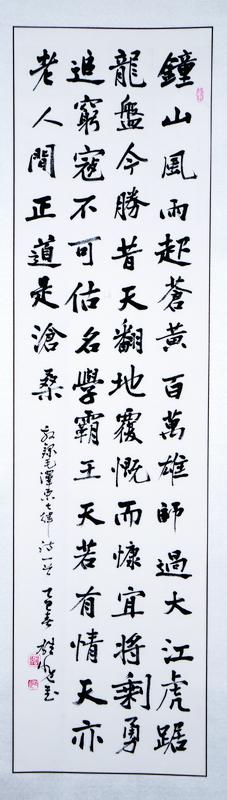 鐘山風雨起蒼黃百萬雄師過大江虎踞
龍盤今勝昔天翻地覆慨而慷宜將剩勇
追窮寇不可估名學霸王天若有情天亦
老人間正道是滄桑
敬錄毛澤東七律詩一首